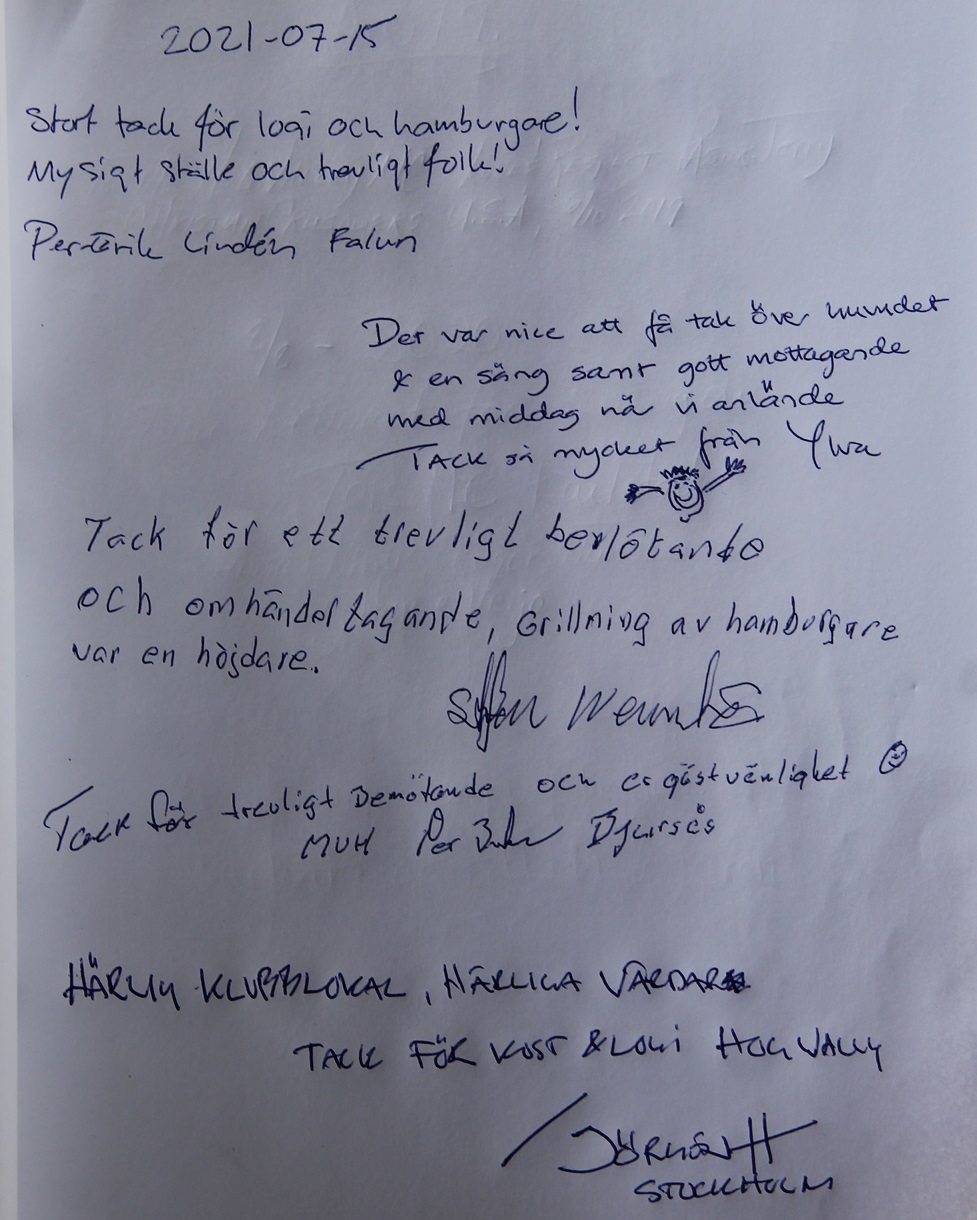 2021-07-15
Stort tack för logi och hamburgare!
Mysigt ställe och trevligt folk!
Per-Erik Lindén Falun
Det var nice att få tak över huvudet
& en säng samt gott mottagande
med middag nä vi anlände
TACK så mycket från Ywa
Tack för ett trevligt bemötande
och omhändertagande, Grillning av hamburgare
var en höjdare.
Tack för trevligt Bemötande och er gästvänlighet
MVH Per Djursés
HÄRLIG KLUBBLOKAL, HÄRLIGA VÄRDAR
TACK FÖR KOST & LOGI HOG VALLY
STOCKHOLM